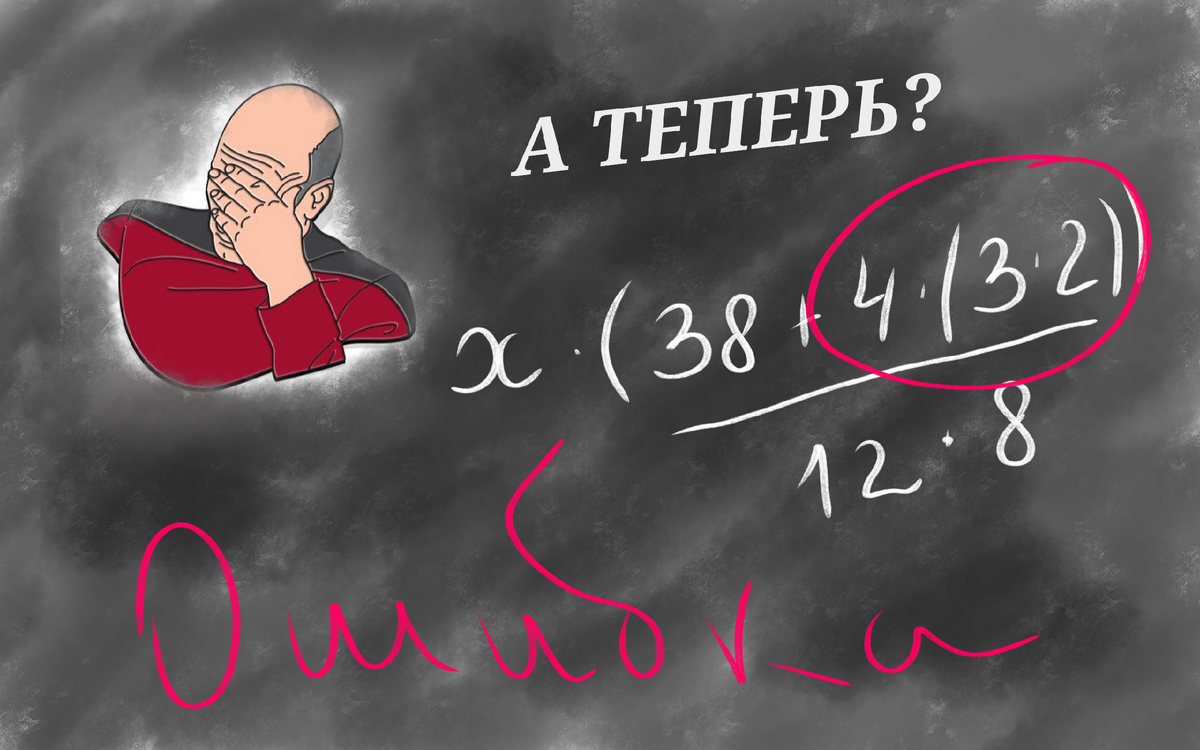 А ТЕПЕРЬ?
x · (38 + 4 · (3 · 2))
12 · 8
Ошибка